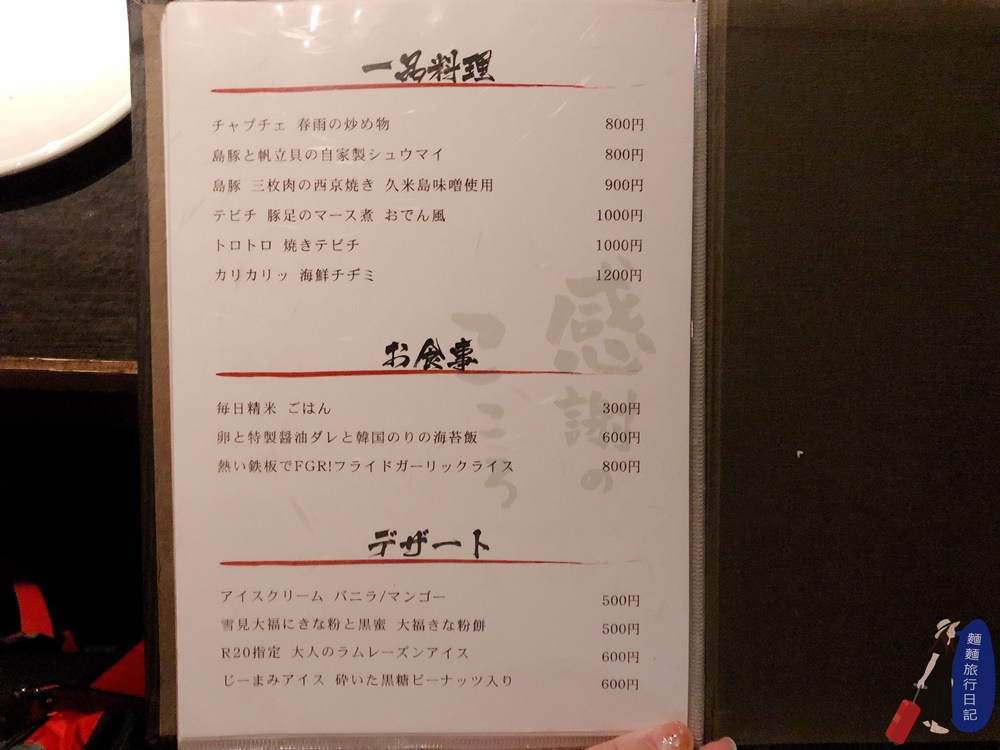 一品料理
チャプチェ 春雨の炒め物 800円
島豚と帆立貝の自家製シュウマイ 800円
島豚 三枚肉の西京焼き 久米島味噌使用 900円
テビチ 豚足のマース煮 おでん風 1000円
トロトロ 焼きテビチ 1000円
カリカリッ 海鮮チヂミ 1200円
感謝の
こころ
お食事
毎日精米 ごはん 300円
卵と特製醤油ダレと韓国のりの海苔飯 600円
熱い鉄板でFGR!フライドガーリックライス 800円
デザート
アイスクリーム バニラ/マンゴー 500円
雪見大福にきな粉と黒蜜 大福きな粉餅 500円
R20指定 大人のラムレーズンアイス 600円
じーまみアイス 砕いた黒糖ピーナッツ入り 600円
麵麵旅行日記